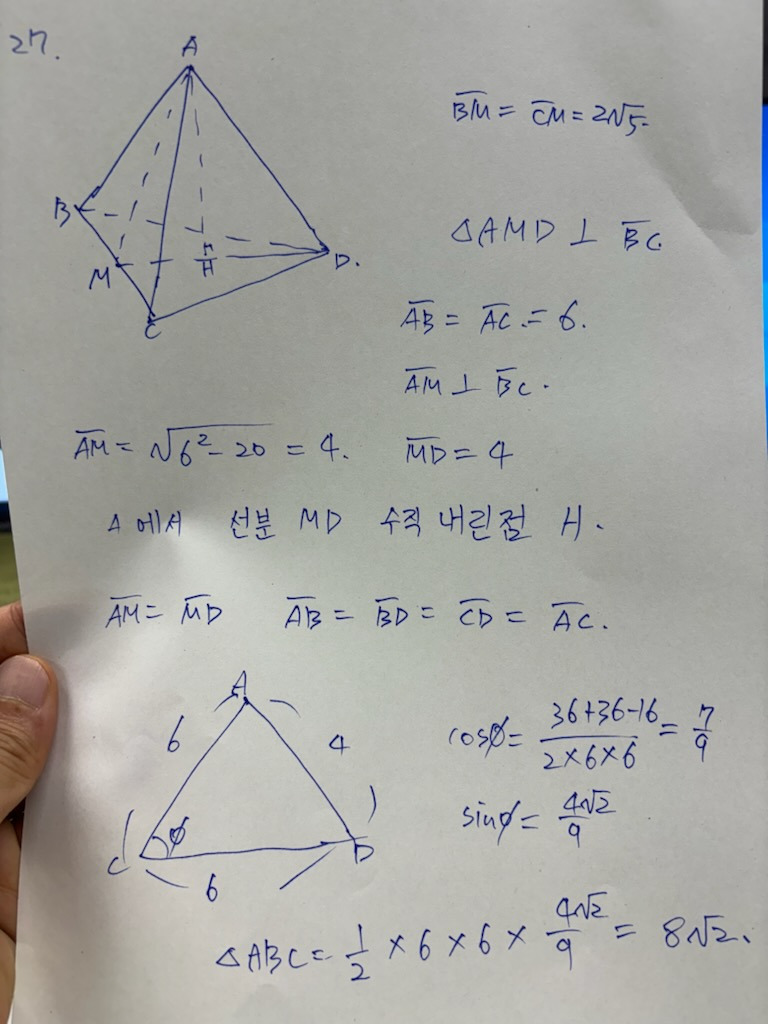 27.
A
B
M
H
D.
C
B̅M̅ = C̅M̅ = 2√5
△AMD ⊥ B̅C̅
A̅B̅ = A̅C̅ = 6.
A̅M̅ ⊥ B̅C̅.
A̅M̅ = √(6²-20) = 4. M̅D̅ = 4
A 에서 선분 MD 수직 내린점 H.
A̅M̅ = M̅D̅ A̅B̅ = B̅D̅ = C̅D̅ = A̅C̅.
A
6
4
C
ϕ
D
6
cosϕ = (36+36-16)/(2×6×6) = 7/9
sinϕ = 4√2/9
△ABC = 1/2 × 6 × 6 × 4√2/9 = 8√2.